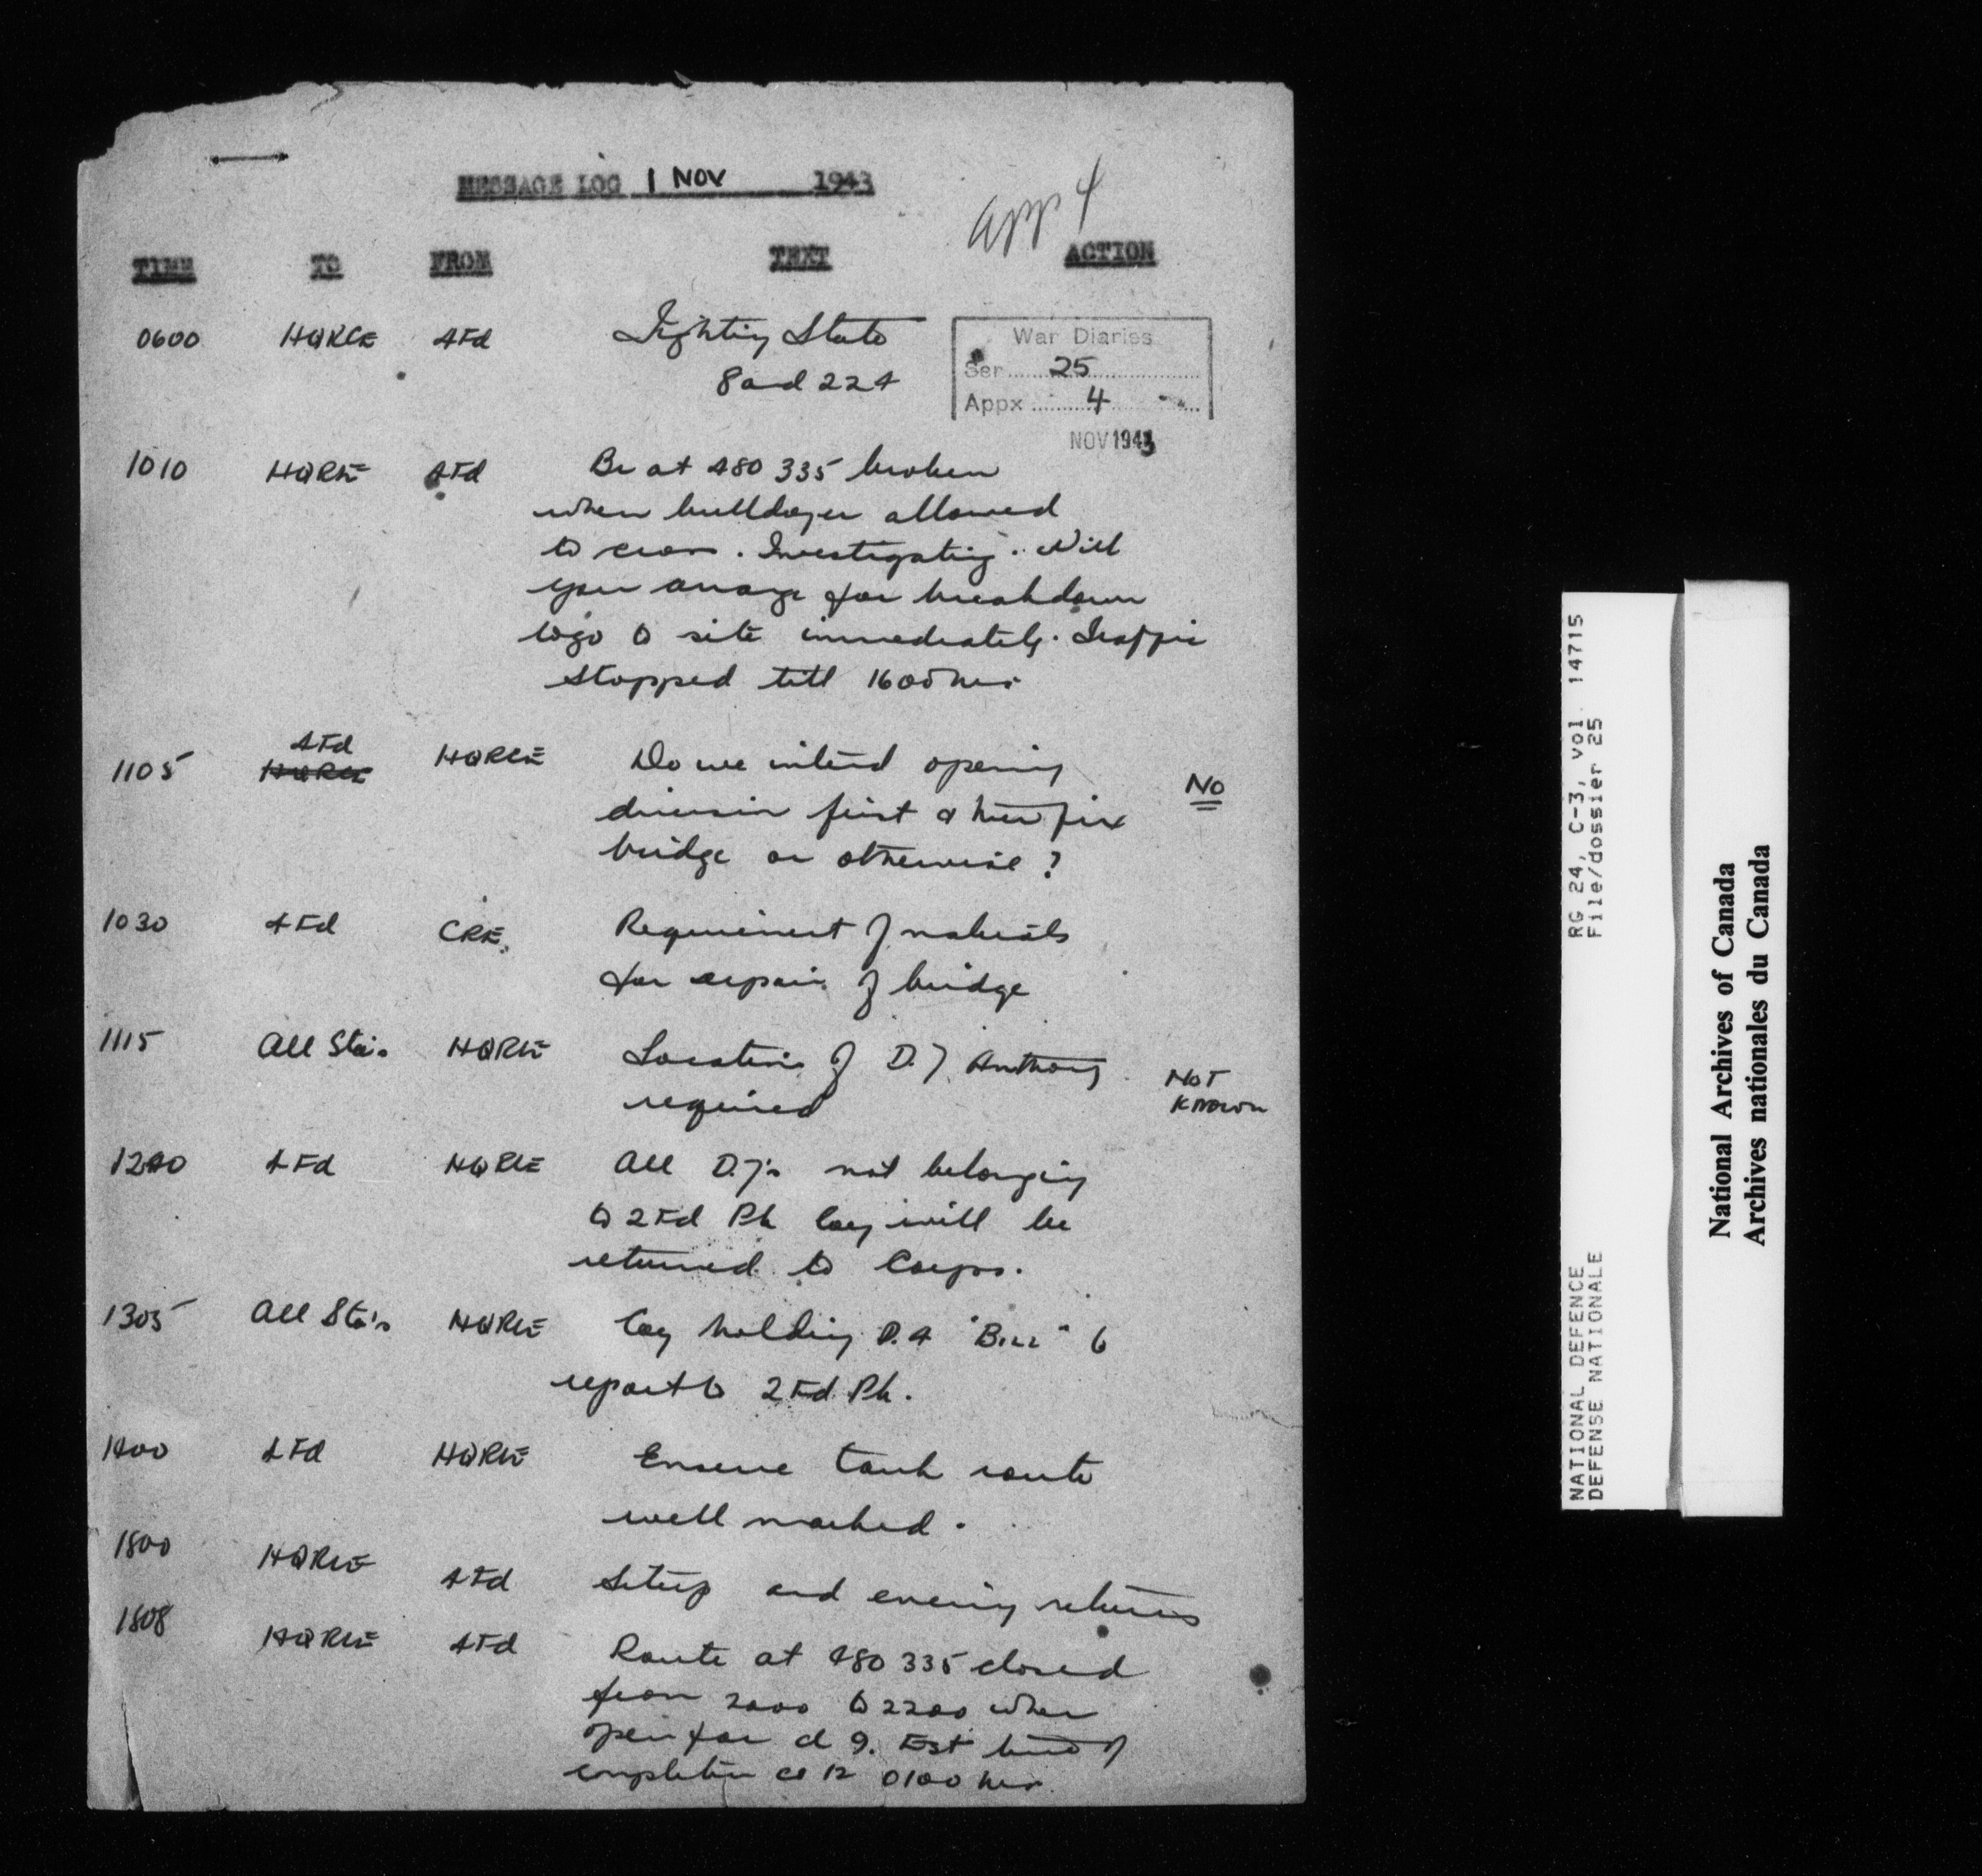 MESSAGE LOG 1 NOV 1943
App 4
TIME TO FROM TEXT ACTION
0600 HQRCE 4Fd Fighting State
8 and 224
War Diaries
Ser 25
Appx 4
NOV 1943
1010 HQRCE 4Fd Br at 480 335 broken
when bulldozer allowed
to cross. Investigating. Will
you arrange for breakdown
to go to site immediately. Traffic
stopped till 1600 hrs
4Fd
1105 HQRCE HQRCE Do we intend opening No
diversion first & then fix
bridge or otherwise?
1030 4Fd CRE Requirement of materials
for repair of bridge
1115 All Stns HQRCE Location of D.7 Anthony NOT
required KNOWN
4Fd HQRCE All D.7's not belonging
to 2 Fd Pk Coy will be
returned to Corps.
1305 All Stns HQRCE Coy holding D.4 "Bill" to
report to 2 Fd. Pk.
1400 4Fd HQRCE Ensure tank route
well marked.
1800 HQRCE 4Fd Sitrep and evening returns
1808 HQRCE 4Fd Route at 480 335 closed
from 2000 to 2200 when
open for cl 9. Est time of
completion cl 12 0100 hrs.
RG 24, C-3, vol 14715
File/dossier 25
NATIONAL DEFENCE
DEFENSE NATIONALE
National Archives of Canada
Archives nationales du Canada